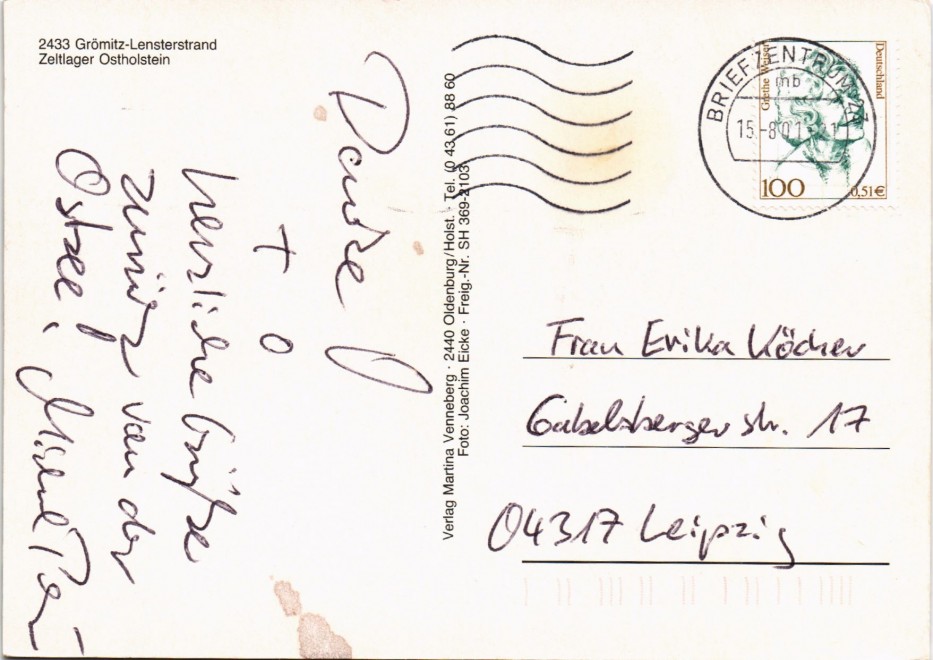 2433 Grömitz-Lensterstrand
Zeltlager Ostholstein
Danke!
+
herzliche Grüße
zurück von der
Ostsee!
Verlag Martina Venneberg · 2440 Oldenburg/Holst. · Tel. (0 43 61) 88 60
Foto: Joachim Eicke · Freig.-Nr. SH 369-2103
BRIEFZENTRUM 23
mb
15.-8.01
Grethe Weiser
Deutschland
100
0,51€
Frau Erika Köcher
Gabelsberger str. 17
04317 Leipzig